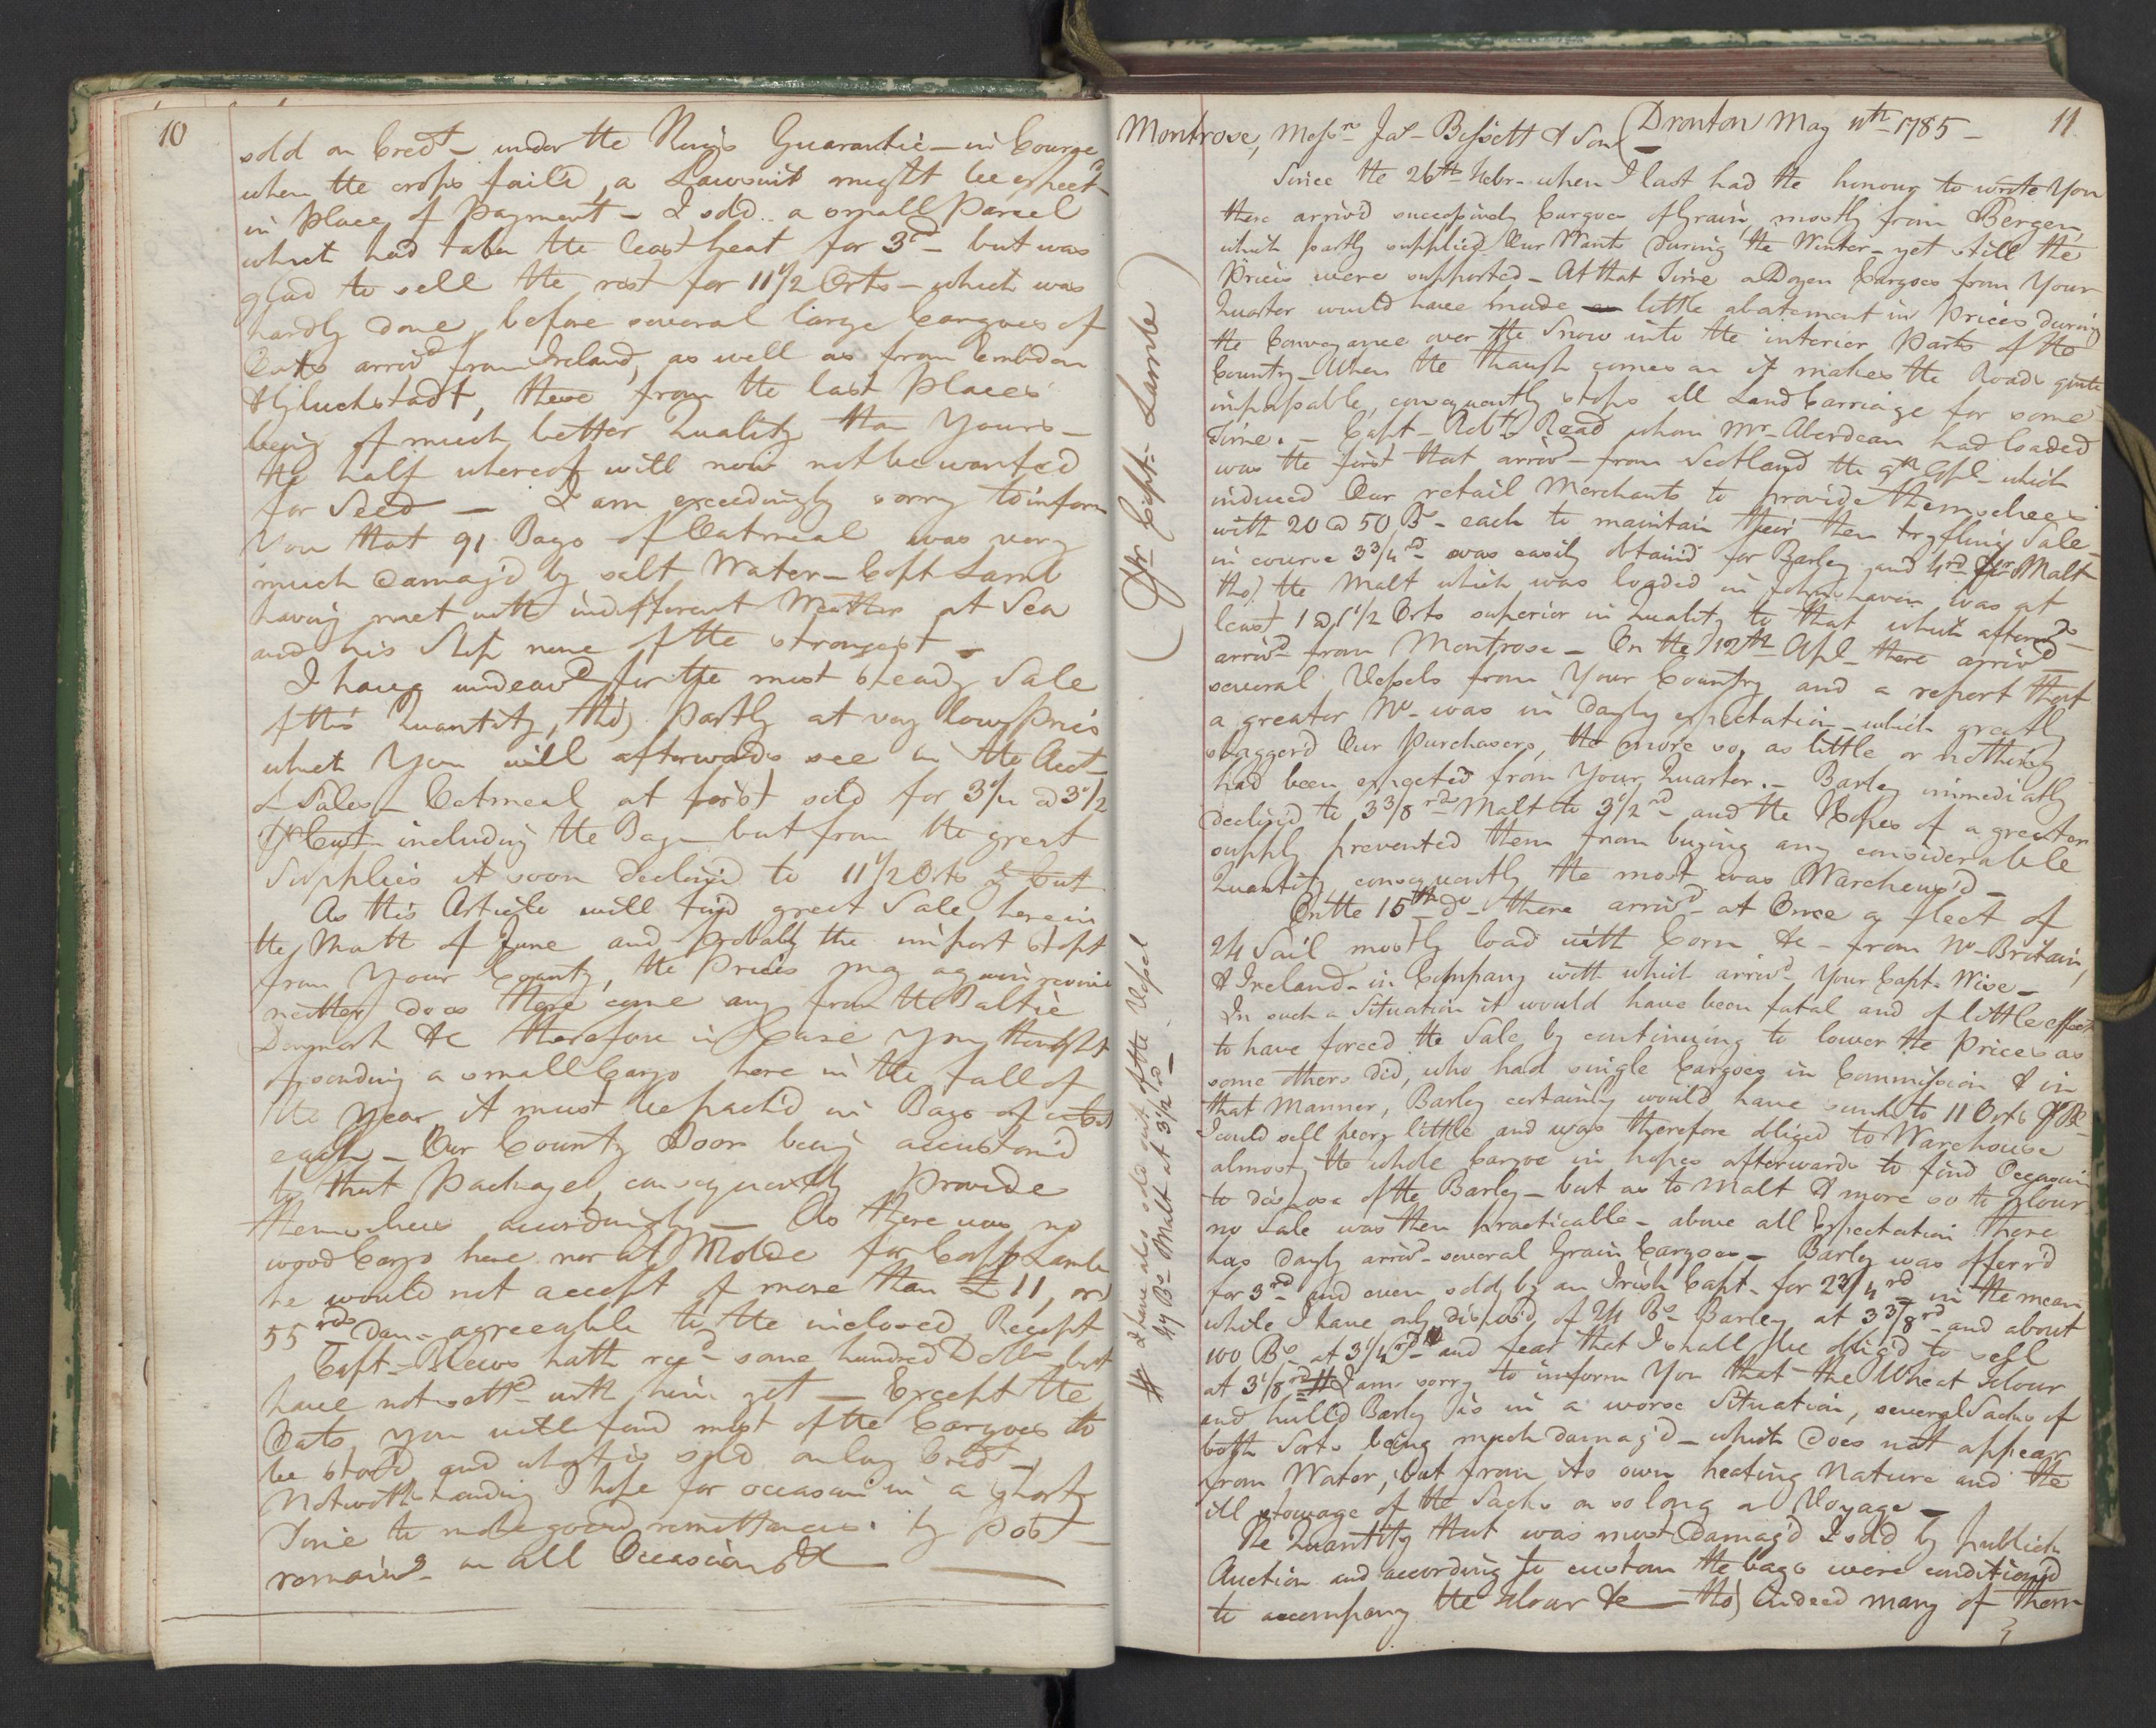 10
sold on Cred.t - under the King's Guarantie - in Course
when the crops fail'd, a Lawsuit might be expect.d
in Place of Payment - I sold a small Parcel
which had taken the least heat for 3rd - but was
glad to sell the rest for 11 1/2 Orts - which was
hardly done before several large Cargoes of
Oats arriv.d from Ireland, as well as from Embden
& Gluckstadt, these from the last Places
being of much better Quality than Yours -
the half whereof will now not be wanted
for Seed - I am exceedingly sorry to inform
You that 91 Bags of Oatmeal was very
much damag'd by salt Water - Capt Lamb
having met with indifferent Weather at Sea
and his Ship none of the strongest -
I have endeav.d for the most steady Sale
of this Quantity, tho) partly at very low Prices
which You will afterwards see in the Acct
of Sales - Oatmeal at first sold for 3 1/4 @ 3 1/2
including the Bag - but from the great
Supplies it soon declin'd to 11 1/2 Orts
As this Article will find great Sale here in
the Month of June and probably the import stopt
from Your County, the Prices may again revive
neither does there come any from the Baltic
Denmark &c therefore in Case You thought
of sending a small Cargo here in the fall of
the Year, it must be pack'd in Bags of
each - Our County Poor being accustom'd
to that Package, consequently Provide
themselves accordingly - As there was no
wood Cargo here nor at Molde for Capt Lamb
he would not accept of more than £ 11, or
55 rds Dan - agreeable to the inclosed Recept
Capt - Blews hath rec.d some hundred Dollrs but
have not settd with him yet - Except the
Oats, You will find most of the Cargoes to
be stor'd and what is sold on long Cred.t -
Notwithstanding I hope for occasion in a short
Time to make good remittances by Post -
remain.g on all Occasions &c

11
Montrose, Mess.rs Jas - Bissett & Son (Dronton May 11th 1785 -
Since the 26th Febr - when I last had the honour to wrote You
there arriv'd successively Cargoes of Grain, mostly from Bergen,
which partly supplied Our Wants during the Winter - yet still the
Prices were supported - At that Time a Dozen Cargoes from Your
Quarter would have made little abatement in Prices during
the Conveyance over the Snow into the interior Parts of the
Country - When the Thaugh comes on it makes the Roads quite
impassable, consequently stops all Land Carriage for some
Time. - Capt - Robt. Read whom Mr - Aberdean had loaded
was the first that arriv.d - from Scotland the 9th Apl - which
induced Our retail Merchants to provide themselves
with 20 @ 50 Bs - each to maintain their then tryfling Sale -
in course 3 3/4 rd - was easily obtain'd for Barley and 4 rd for Malt
tho) the Malt which was loaded in Johnshaven was at
least 1 @ 1 1/2 Orts superior in Quality to that which afterwds
arriv.d from Montrose - On the 10th Apl - there arriv.d
several Vessels from Your Country and a report that
a greater No - was in dayly expectation - which greatly
staggerd Our Purchasers, the more so, as little or nothing
had been expected from Your Quarter. - Barley immediatly
declin'd to 3 3/8 rd - Malt to 3 1/2 rd - and the Hopes of a greater
supply prevented them from buying any considerable
Quantity consequently the most was Warehous'd -
On the 15th do - there arriv.d at Once a fleet of
24 Sail mostly load with Corn &c - from No - Britain,
& Ireland - in Company with which arriv.d Your Capt - Wise -
In such a Situation it would have been fatal and of little effect
to have forced the Sale by continuing to lower the Prices as
some others did, who had single Cargoes in Commission & in
that Manner, Barley certainly would have sunk to 11 Orts
I could sell very little and was therefore obliged to Warehouse
almost the whole Cargoe in hopes afterwards to find Occasion
to dispose of the Barley - but as to Malt & more so the flour
no Sale was then practicable - above all Expectation there
has dayly arriv.d several Grain Cargoes - Barley was offer'd
for 3 rd - and even sold by an Irish Capt - for 2 3/4 rd - in the mean
while I have only dispos'd of 24 Bs - Barley at 3 3/8 rd - and about
100 Bs - at 3 1/4 rd - and fear that I shall be oblig'd to sell
at 3 1/8 rd - # I am sorry to inform You that the Wheat flour
and hull'd Barley is in a worse Situation, several Sacks of
both Sorts being much damag'd - which does not appear
from Water, but from its own heating Nature and the
ill stowage of the Sacks on so long a Voyage -
The Quantity that was most Damag'd I sold by publick
Auction and according to custom the bags were condition'd
to accompany the flour &c - tho) indeed many of them
( Pr Capt: Lamb )
# I have also sold out of the Vessel
49 Bs - Malt at 3 1/2 rd -